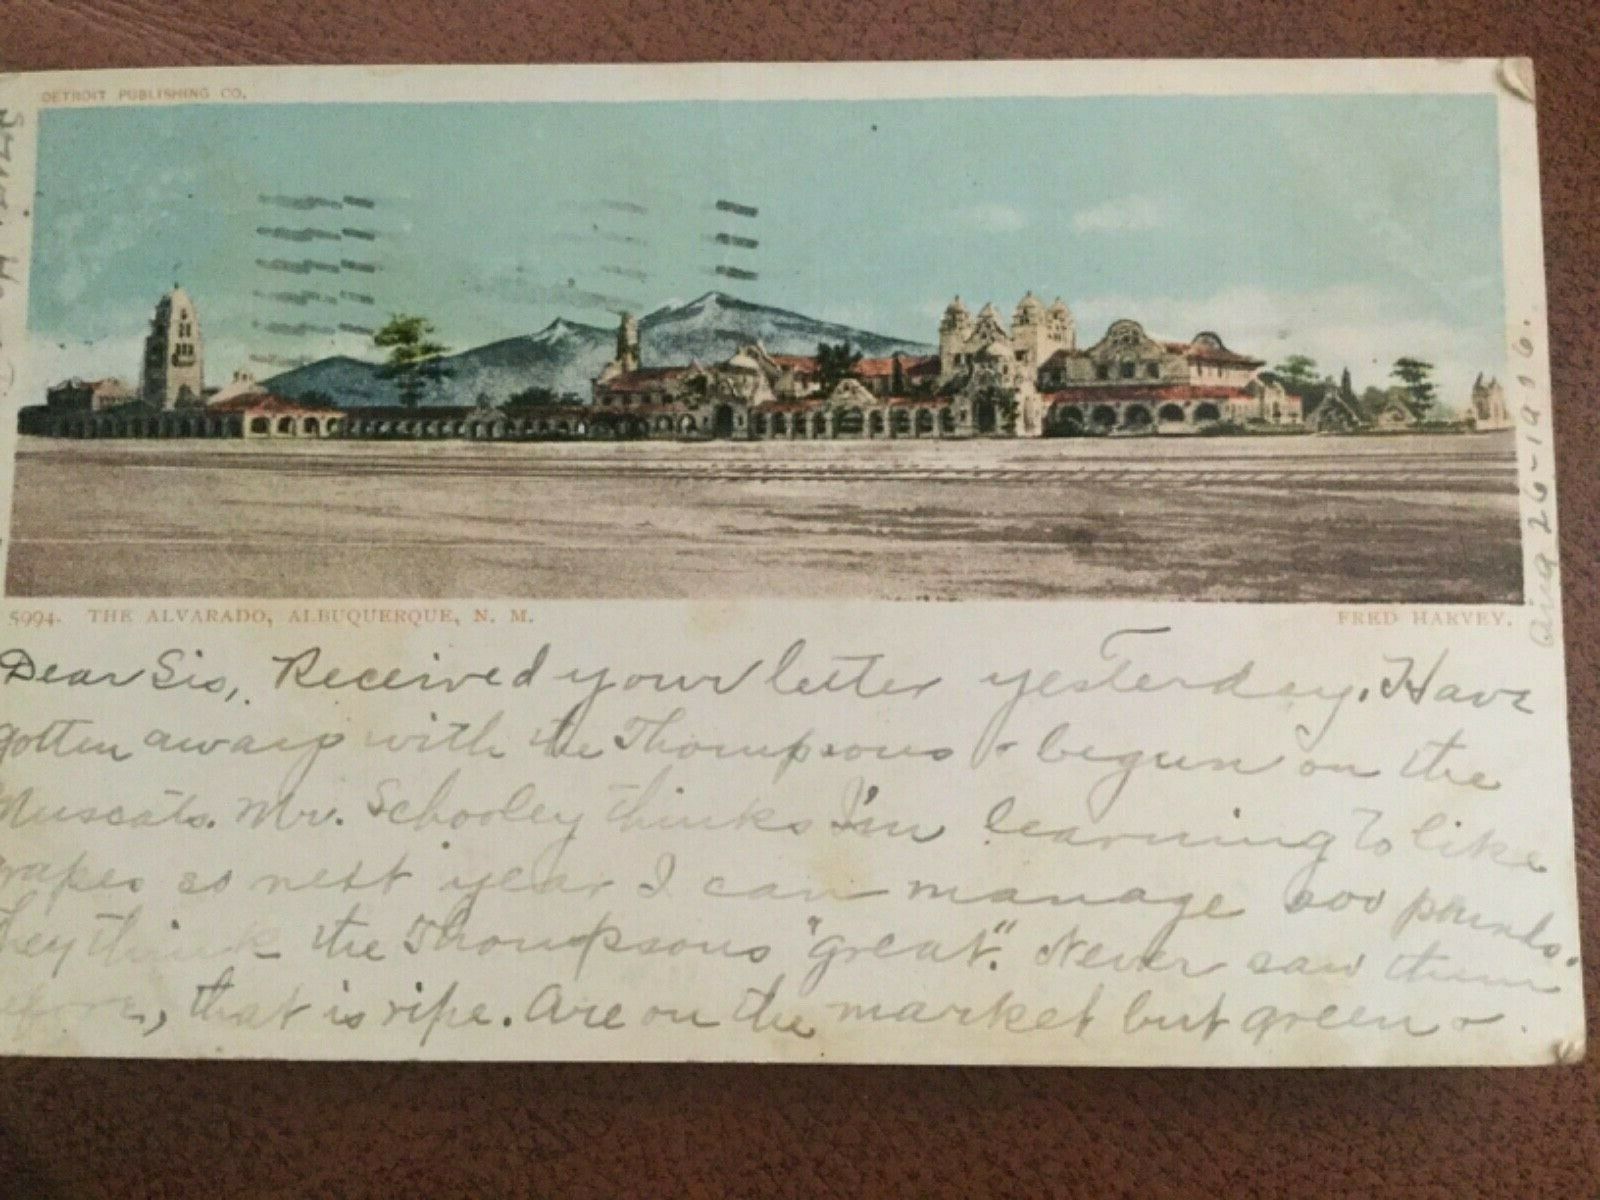 DETROIT PUBLISHING CO.
5994. THE ALVARADO, ALBUQUERQUE, N. M.
FRED HARVEY.
Aug 26-1906.
Dear Sis, Received your letter yesterday. Have
gotten away with the Thompsons & begun on the
Muscats. Mr. Schooley thinks I'm learning to like
grapes so next year I can manage 500 pounds.
They think the Thompsons "great". Never saw them
before, that is ripe. Are on the market but green &.